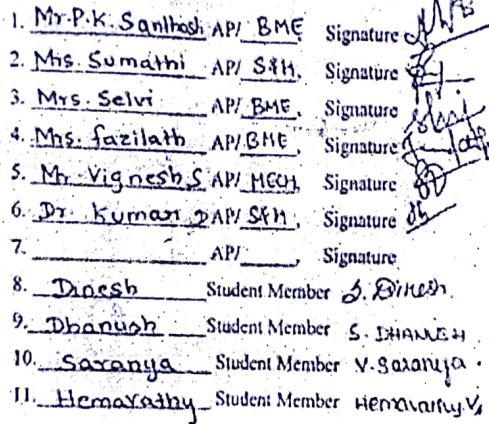 1. Mr.P.K. Santhosh AP/ BME Signature
2. Mrs. Sumathi AP/ S&H, Signature
3. Mrs. Selvi AP/ BME, Signature Selvi
4. Mrs. fazilath AP/ BME, Signature
5. Mr. Vignesh S AP/ MECH, Signature
6. Dr. Kumar AP/ S&H, Signature
7. AP/ , Signature
8. Dinesh Student Member S. Dinesh.
9. Dhanush Student Member S. DHANUSH
10. Saranya Student Member V. Saranya.
11. Hemavathy Student Member Hemavathy.V,